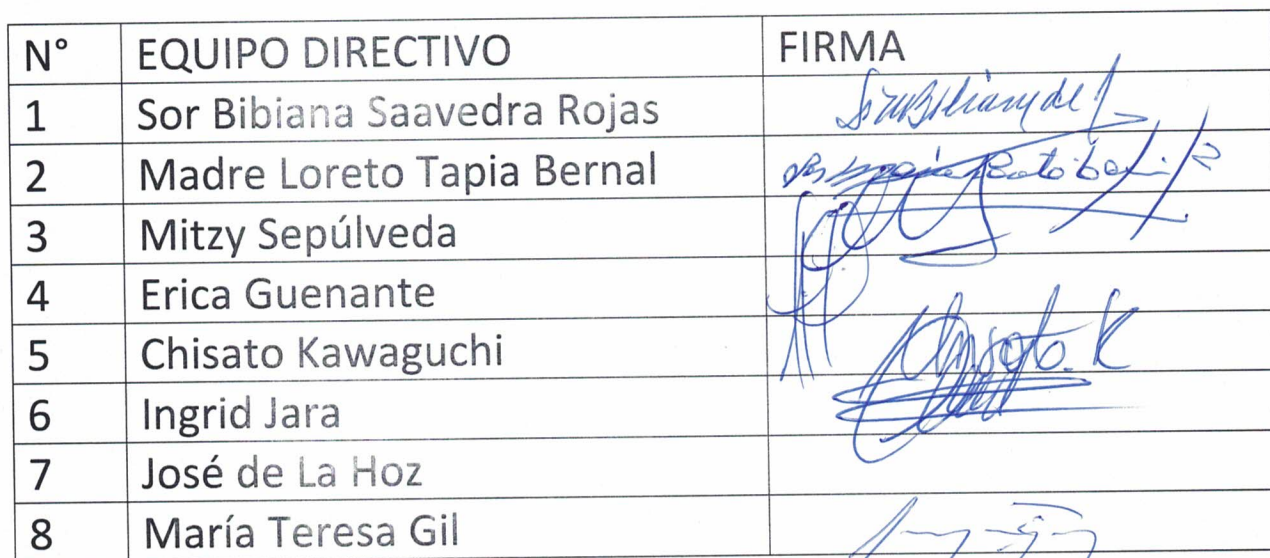 N° EQUIPO DIRECTIVO FIRMA
1 Sor Bibiana Saavedra Rojas
2 Madre Loreto Tapia Bernal
3 Mitzy Sepúlveda
4 Erica Guenante
5 Chisato Kawaguchi Chisato. K
6 Ingrid Jara
7 José de La Hoz
8 María Teresa Gil